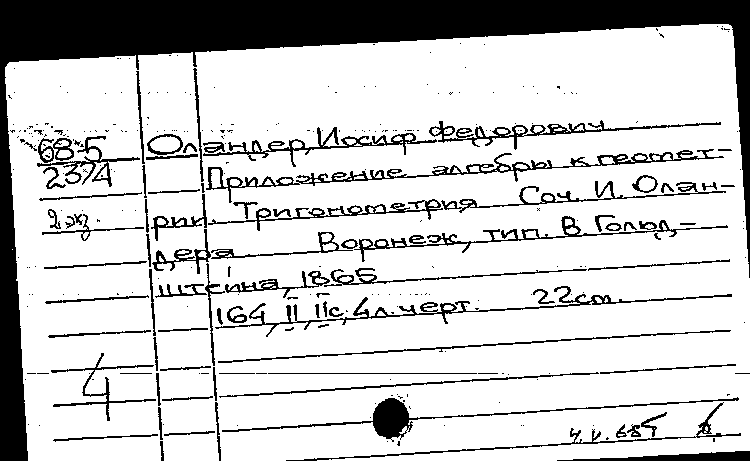 68-5 Оландер, Иосиф Федорович
2374 Приложение алгебры к геомет-
2 экз. рии. Тригонометрия Соч. И. Олан-
дера Воронеж, тип. В. Гольд-
штейна, 1865
164, II, IIс, 4 л. черт. 22 см.
4
4.V.68г